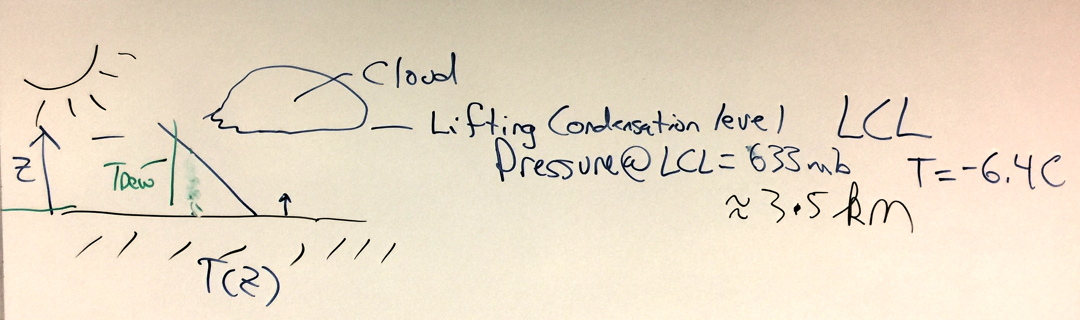 Cloud
Lifting Condensation level LCL
Pressure@LCL= 633mb T=-6.4C
≈3.5km
Z
TDew
T(Z)